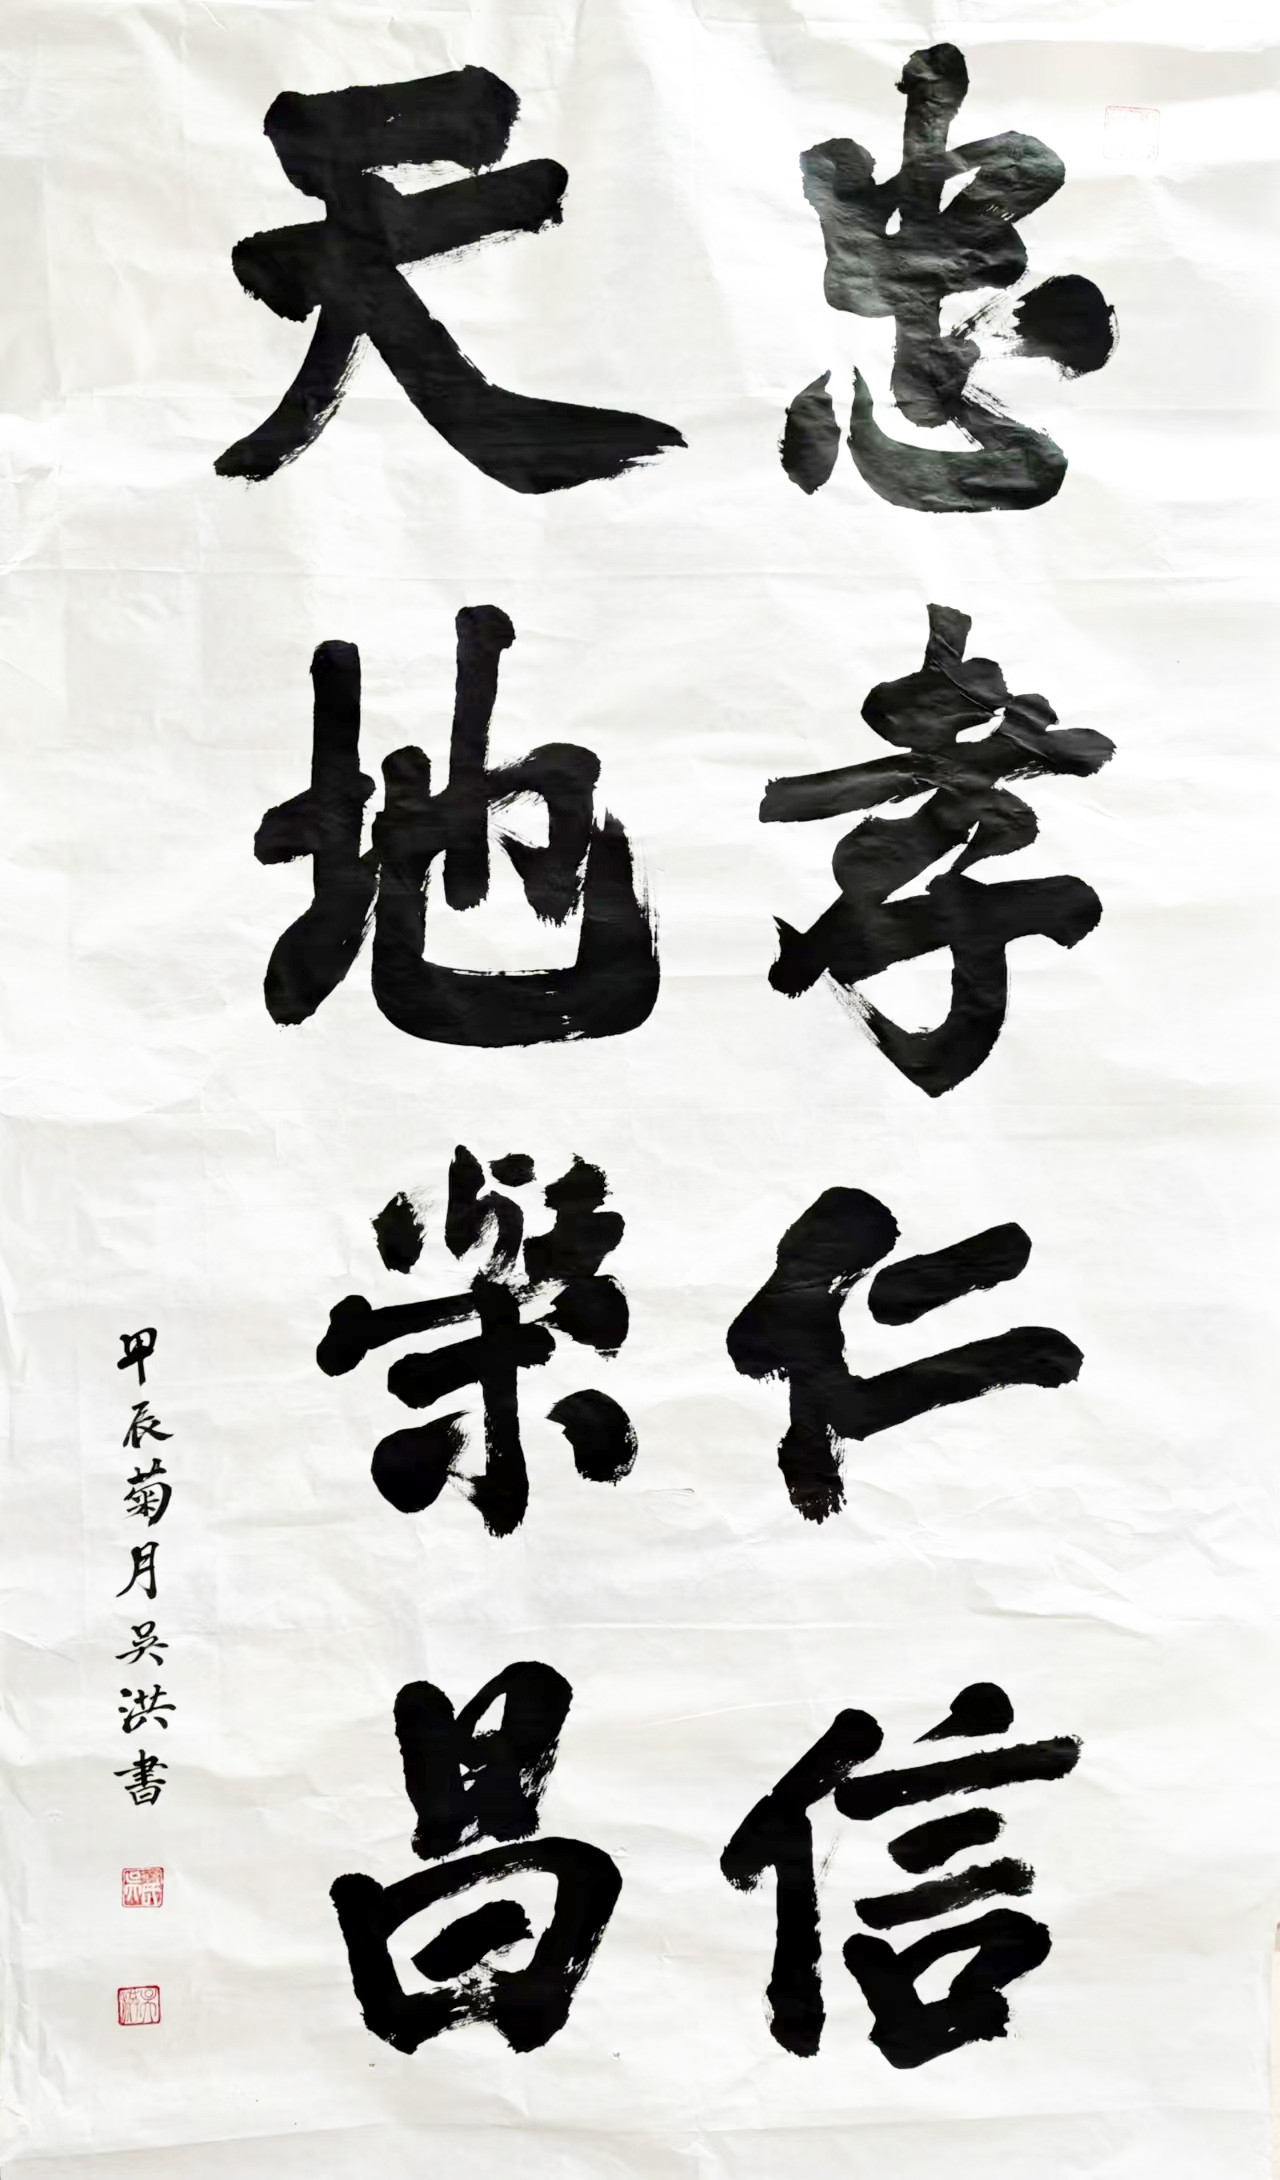 忠孝仁信
天地榮昌
甲辰菊月吳洪書